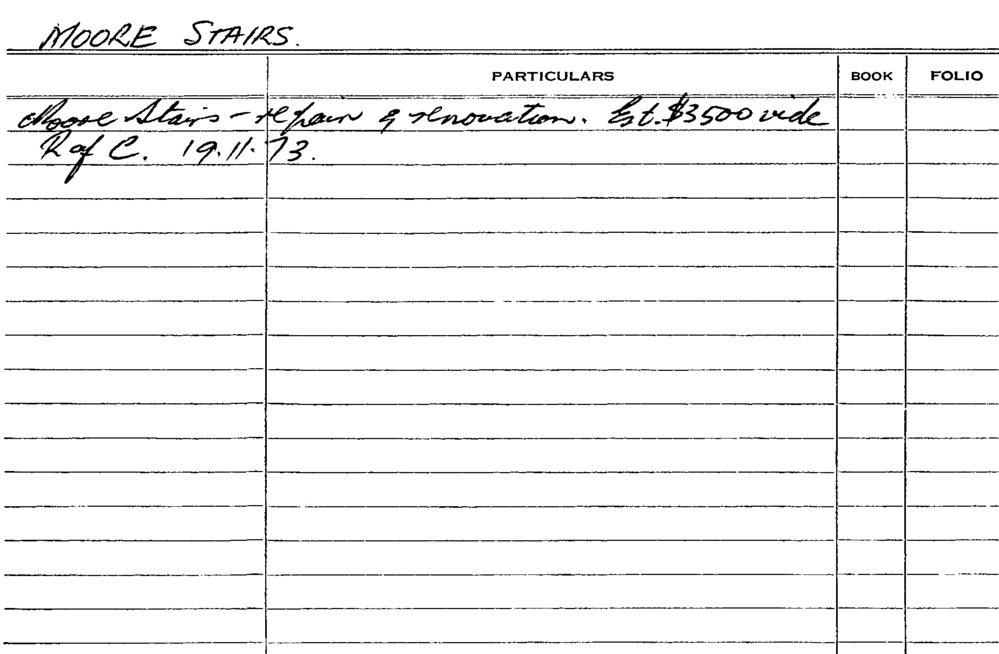 MOORE STAIRS.
PARTICULARS BOOK FOLIO
Moore Stairs - repair & renovation. Est. $3500 vide
R of C. 19.11.73.